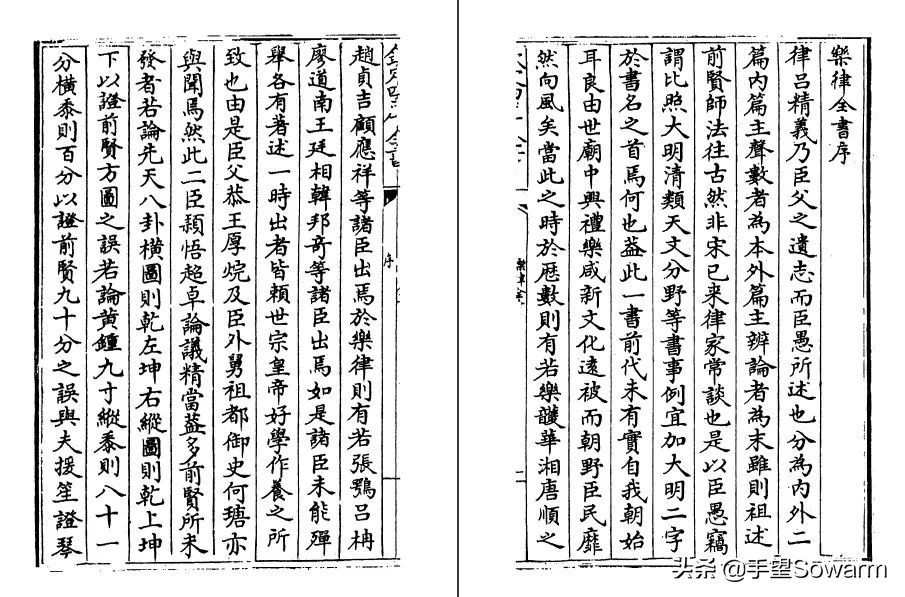 樂律全書序
律呂精義乃臣父之遺志而臣愚所述也分為内外二
篇内篇主聲數者為本外篇主辨論者為末雖則祖述
前賢師法往古然非宋已来律家常談也是以臣愚竊
謂比照大明清類天文分野等書事例宜加大明二字
於書名之首焉何也葢此一書前代未有實自我朝始
耳良由世廟中興禮樂咸新文化逺被而朝野臣民靡
然向風矣當此之時於厯數則有若樂頀華湘唐順之
樂律全書
二
序
趙貞吉顧應祥等諸臣出焉於樂律則有若張鶚吕柟
廖道南王廷相韓邦竒等諸臣出焉如是諸臣未能殫
舉各有著述一時出者皆頼世宗皇帝好學作養之所
致也由是臣父恭王厚烷及臣外舅祖都御史何瑭亦
與聞焉然此二臣穎悟超卓論議精當葢多前賢所未
發者若論先天八卦横圖則乾左坤右縱圖則乾上坤
下以證前賢方圖之誤若論黄鍾九寸縱黍則八十一
分横黍則百分以證前賢九十分之誤與夫援笙證琴
头条 @手望Sowarm